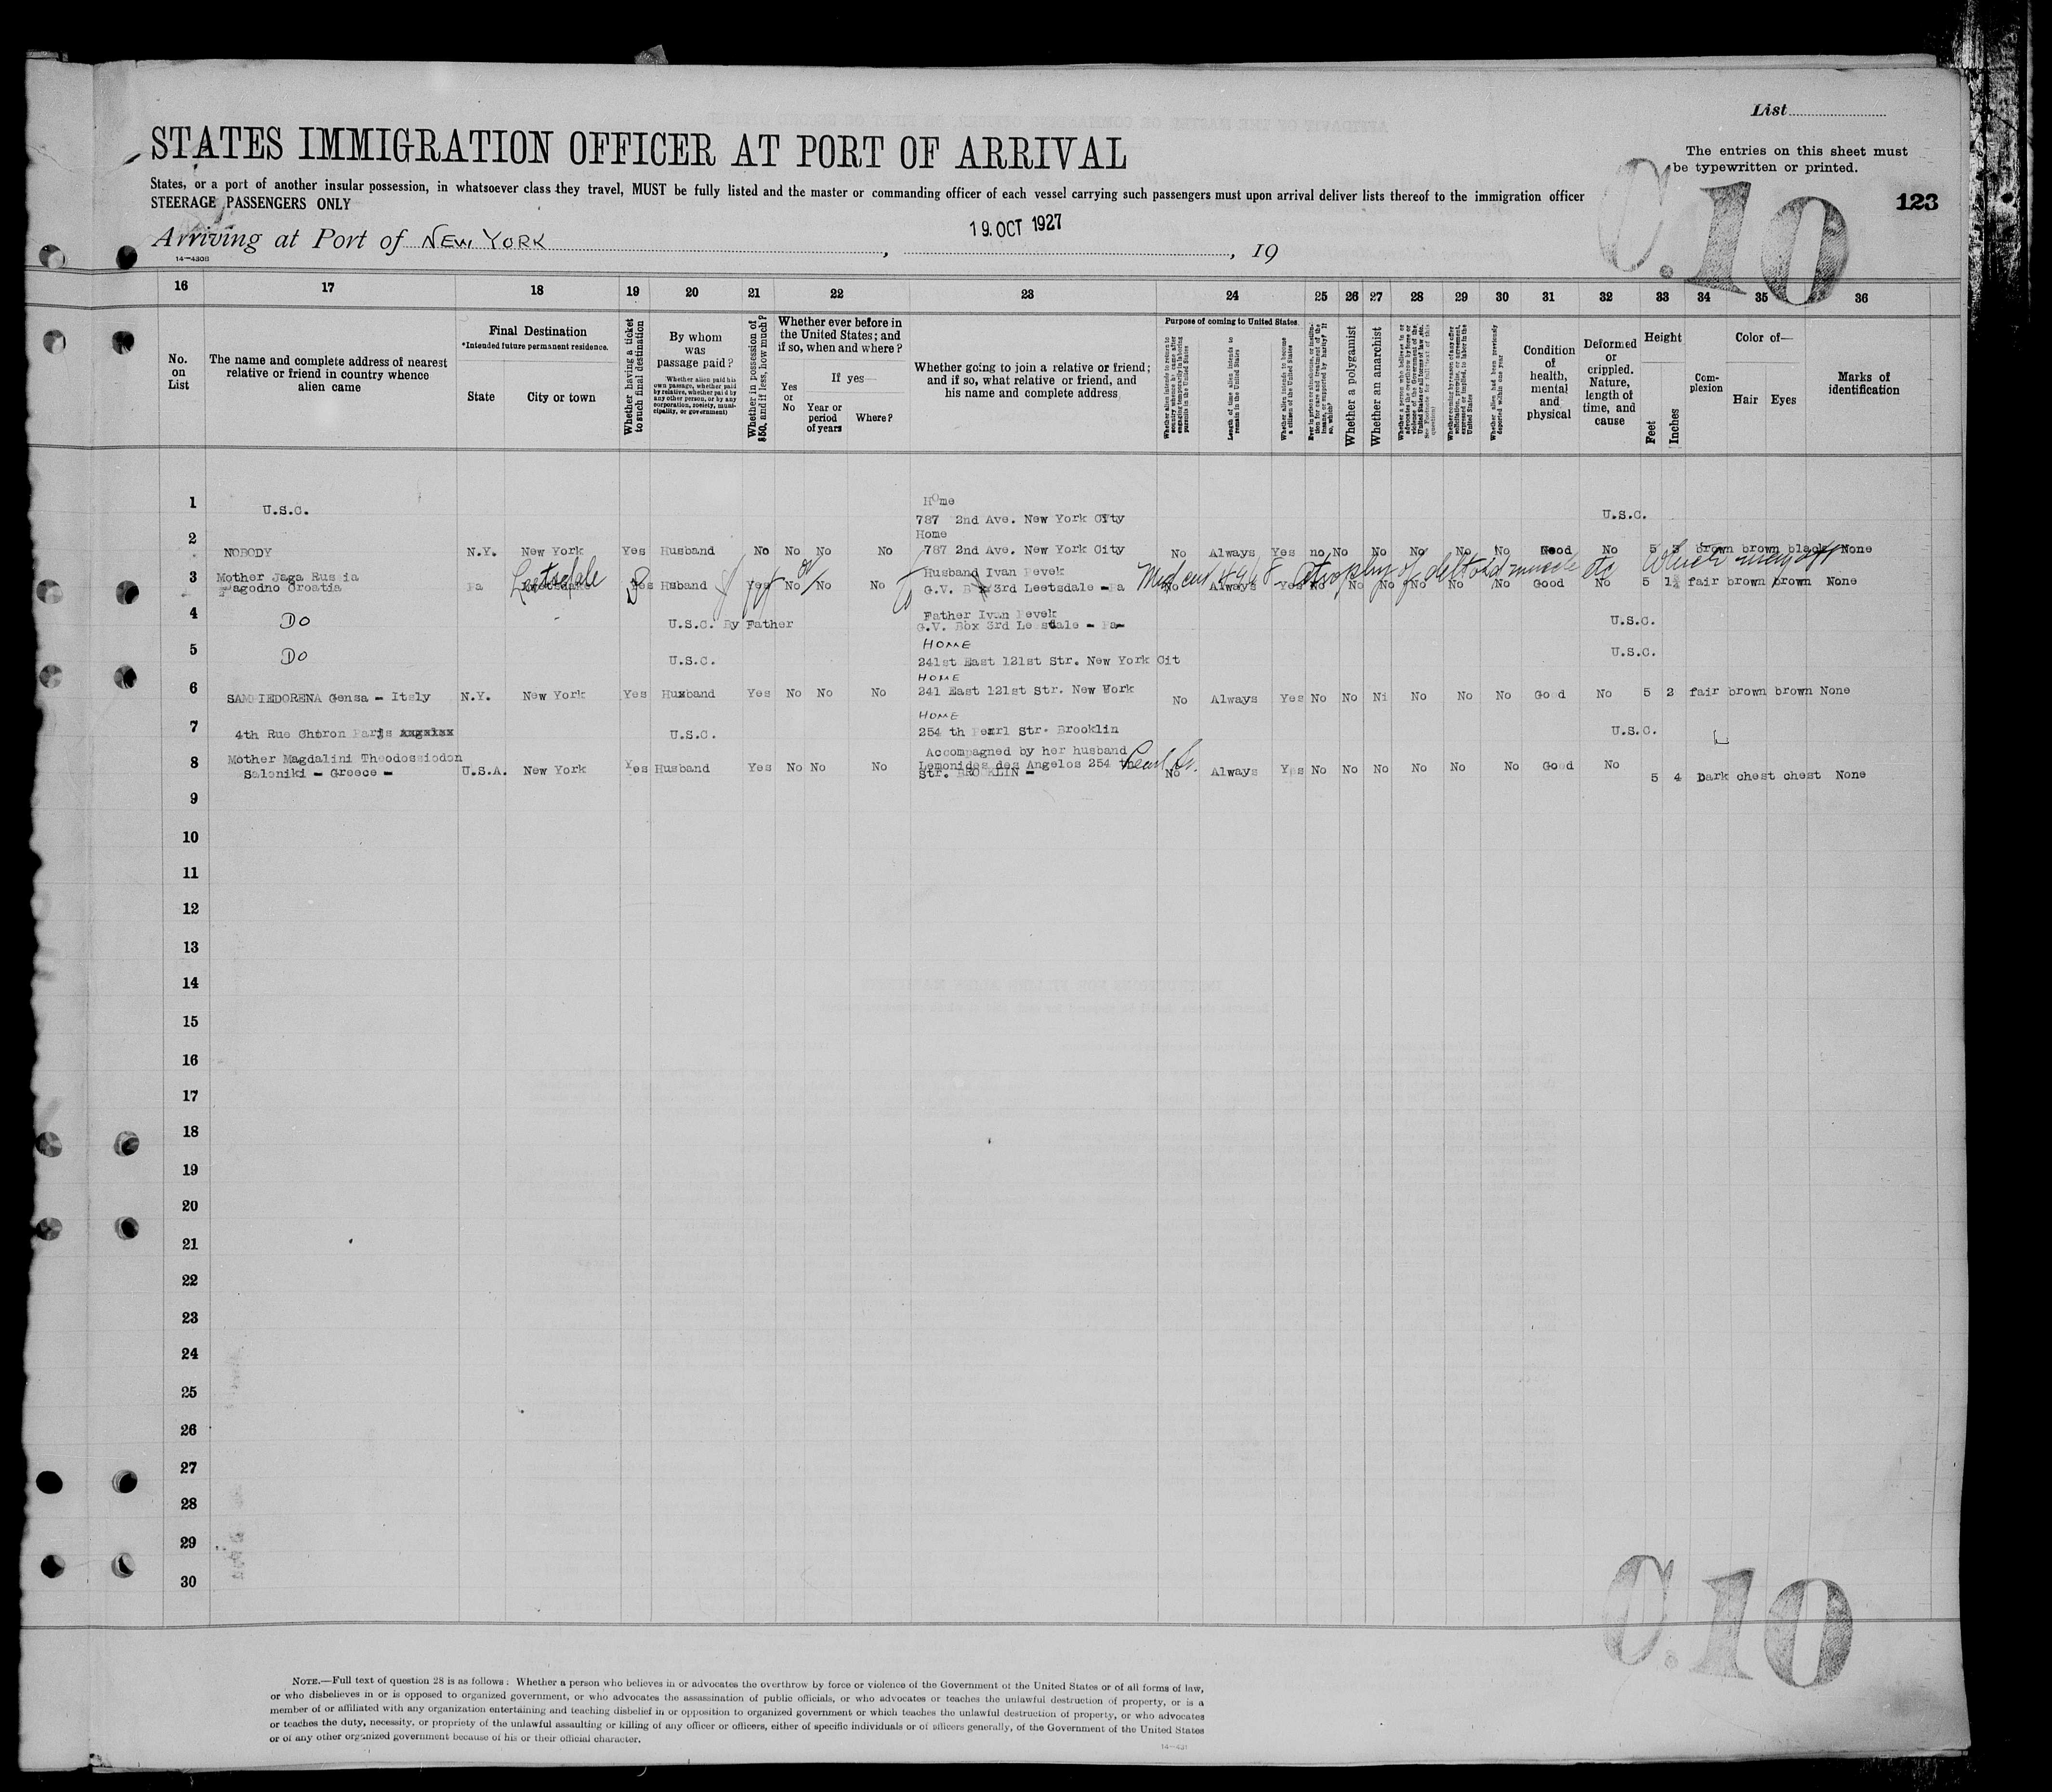 List
STATES IMMIGRATION OFFICER AT PORT OF ARRIVAL
The entries on this sheet must
be typewritten or printed.
States, or a port of another insular possession, in whatsoever class they travel, MUST be fully listed and the master or commanding officer of each vessel carrying such passengers must upon arrival deliver lists thereof to the immigration officer
STEERAGE PASSENGERS ONLY
C.10
123
Arriving at Port of NEW YORK, 19. OCT 1927, 19
14-430B
16 17 18 19 20 21 22 23 24 25 26 27 28 29 30 31 32 33 34 35 36
No.
on
List
The name and complete address of nearest
relative or friend in country whence
alien came
Final Destination
*Intended future permanent residence.
State
City or town
Whether having a ticket
to such final destination
By whom
was
passage paid?
Whether alien paid his
own passage, whether paid
by relative, whether paid by
any other person, or by any
corporation, society, muni-
cipality, or government)
Whether in possession of
$50, and if less, how much?
Whether ever before in
the United States; and
if so, when and where?
Yes
or
No
If yes—
Year or
period
of years
Where?
Whether going to join a relative or friend;
and if so, what relative or friend, and
his name and complete address
Purpose of coming to United States.
Whether alien intends to return to
country whence he came after
engaging temporarily in laboring
pursuits in the United States
Length of time alien intends to
remain in the United States
Whether alien intends to become
a citizen of the United States
Ever in prison or almshouse, or institu-
tion for care and treatment of the
insane, or supported by charity? If
so, which?
Whether a polygamist
Whether an anarchist
Whether alien had been previously
deported within one year
Condition
of
health,
mental
and
physical
Deformed
or
crippled.
Nature,
length of
time, and
cause
Height
Feet
Inches
Com-
plexion
Color of—
Hair
Eyes
Marks of
identification
1 U.S.C. Home
787 2nd Ave. New York City U.S.C.
2 Home
NOBODY N.Y. New York Yes Husband No No No No 787 2nd Ave. New York City No Always Yes no No No No No No Good No 5 3 brown brown black None
3 Mother Jaga Russia Leetsdale Husband Ivan Pevek Med cert Atrophy of deltoid muscle etc which may aff
Jagodno Croatia Pa Yes Husband Yes No No No G.V. Box 3rd Leetsdale - Pa No Always Yes No No No No No No Good No 5 1½ fair brown brown None
4 Do U.S.C. By Father Father Ivan Pevek
G.V. Box 3rd Leesdale - Pa- U.S.C.
5 Do U.S.C. HOME
241st East 121st Str. New York Cit U.S.C.
6 HOME
SAMPIEDORENA Gensa - Italy N.Y. New York Yes Husband Yes No No No 241 East 121st Str. New York No Always Yes No No Ni No No No Good No 5 2 fair brown brown None
7 HOME
4th Rue Choron Paris U.S.C. 254 th Pearl Str. Brooklin U.S.C.
8 Mother Magdalini Theodossiodon Accompagned by her husband
Saloniki - Greece - U.S.A. New York Yes Husband Yes No No No Lemonides des Angelos 254 the Pearl Str.
Str. BROOKLIN - No Always Yes No No No No No No Good No 5 4 Dark chest chest None
9
10
11
12
13
14
15
16
17
18
19
20
21
22
23
24
25
26
27
28
29
30
C.10
NOTE.—Full text of question 28 is as follows: Whether a person who believes in or advocates the overthrow by force or violence of the Government of the United States or of all forms of law,
or who disbelieves in or is opposed to organized government, or who advocates the assassination of public officials, or who advocates or teaches the unlawful destruction of property, or is a
member of or affiliated with any organization entertaining and teaching disbelief in or opposition to organized government or which teaches the unlawful destruction of property, or who advocates
or teaches the duty, necessity, or propriety of the unlawful assaulting or killing of any officer or officers, either of specific individuals or of officers generally, of the Government of the United States
or of any other organized government because of his or their official character.
14-431